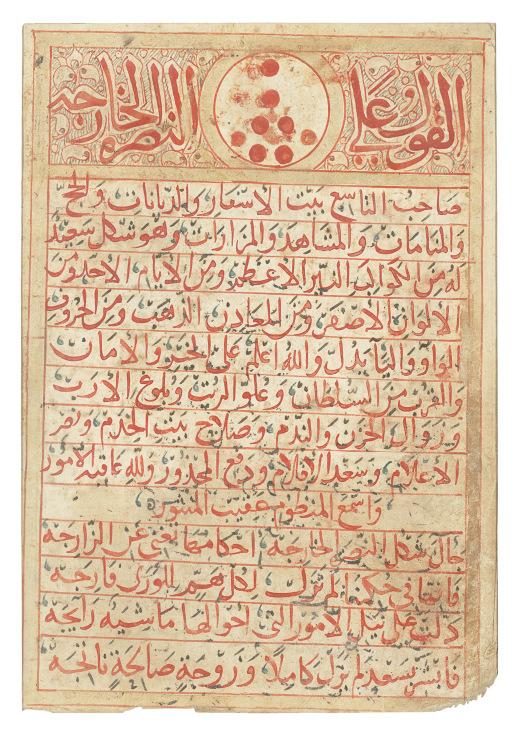 القول على
النصرة الخارجة
صاحب التاسع بيت الأسفار والديانات والحج
والمنامات والمشاهد والمزارات وهو شكل سعيد
له من الكواكب النير الأعظم ومن الأيام الأحد ومن
الألوان الأصفر ومن المعادن الذهب ومن الحروف
الواو والتا يدل والله اعلم على الخير والأمان
والقرب من السلطان وعلو الرتب وبلوغ الارب
وزوال الحزن والندم وصلاح بيت الخدم ونصر
الأعلام وسعد الأقلام ودفع المحذور ولله عاقبة الأمور
واسمع المنظوم عقيب المنثور
حال شكل النصرة الخارجه احكامها تغني عن الزارجه
فانها في حكمها لم تزل لكل هم للورى فارجه
دلت على نيل الأمور التي احوالها ماشيه رايجه
فابشر بسعد لم يزل كاملا وزوجة صالحة ناتجه